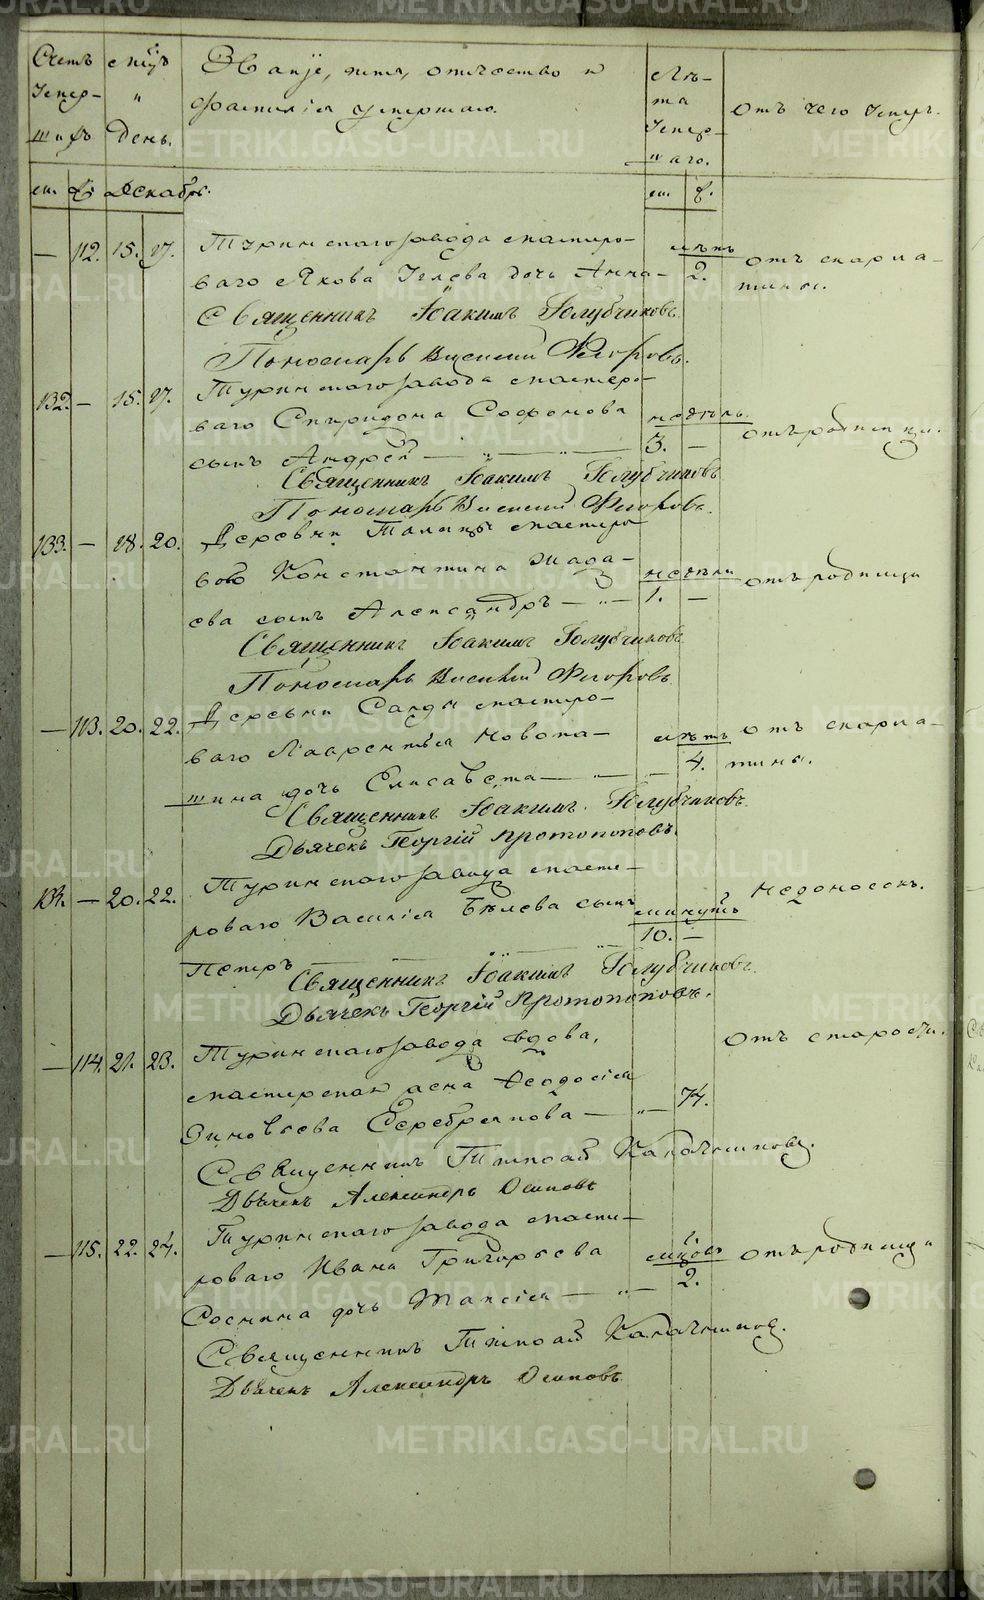 Счетъ Умер- шихъ
Мѣсяцъ и День.
Званіе, имя, отчество и
фамилія умершаго.
Лѣ-
та
Умер-
шаго.
Отъ чего умеръ.
м. ж. Декабрь.
м. ж.
— 112. 15. 17. Туринскаго завода мастеро-
ваго Якова дочь Анна — лѣтъ 2. отъ скарла-
тины.
Священникъ Іоакимъ Голубчиковъ.
Пономарь Василий Флоровъ.
132. — 15. 17. Туринскаго завода мастеро-
ваго Спиридона Софонова недѣль 3. — отъ родимца.
сынъ Андрей — „ —
Священникъ Іоакимъ Голубчиковъ
Пономарь Василий Флоровъ.
133. — 18. 20. Деревни Талицы мастеро-
ваго Константина недѣли 1. — отъ родимца
сынъ Александръ — „ —
Священникъ Іоакимъ Голубчиковъ
Пономарь Василий Флоровъ
— 113. 20. 22. Деревни Салды мастеро-
ваго Лаврентія Новопа- лѣтъ 4. отъ скарла-
шина дочь Елисавета — „ — тины.
Священникъ Іоакимъ Голубчиковъ.
Дьячекъ Георгій Протопоповъ.
134. — 20. 22. Туринскаго завода масте-
роваго Василія Бѣлева сынъ минутъ 10. — Недоносокъ.
Петеръ — „ —
Священникъ Іоакимъ Голубчиковъ.
Дьячекъ Георгій Протопоповъ.
— 114. 21. 23. Туринскаго завода вдова, Отъ старости.
мастерская жена Ѳеодосія
Зиновьева Серебрякова — „ — 74.
Священникъ Тимоѳей Калачниковъ.
Дьячекъ Александръ Осиповъ
— 115. 22. 24. Туринскаго завода масте-
роваго Ивана Григорьева мѣсяцовъ 2. отъ родимца
Соснина дочь Таисія — „ —
Священникъ Тимоѳей Калачниковъ.
Дьячекъ Александръ Осиповъ.
METRIKI.GASO-URAL.RU